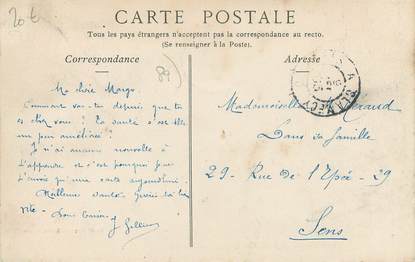 20 €
CARTE POSTALE
Tous les pays étrangers n'acceptent pas la correspondance au recto.
(Se renseigner à la Poste).
Correspondance
Adresse
89
Ma chère Margo
Comment vas-tu depuis que tu
es chez vous ? Ta santé s'est-elle
un peu améliorée ?
Je n'ai aucune nouvelle à
t'apprendre et c'est pourquoi je
t'envoie qu'une carte aujourd'hui.
Meilleure santé
vite - Bons baisers
Mademoiselle M.
Dans sa famille
29 - Rue de l'Epée - 29
Sens